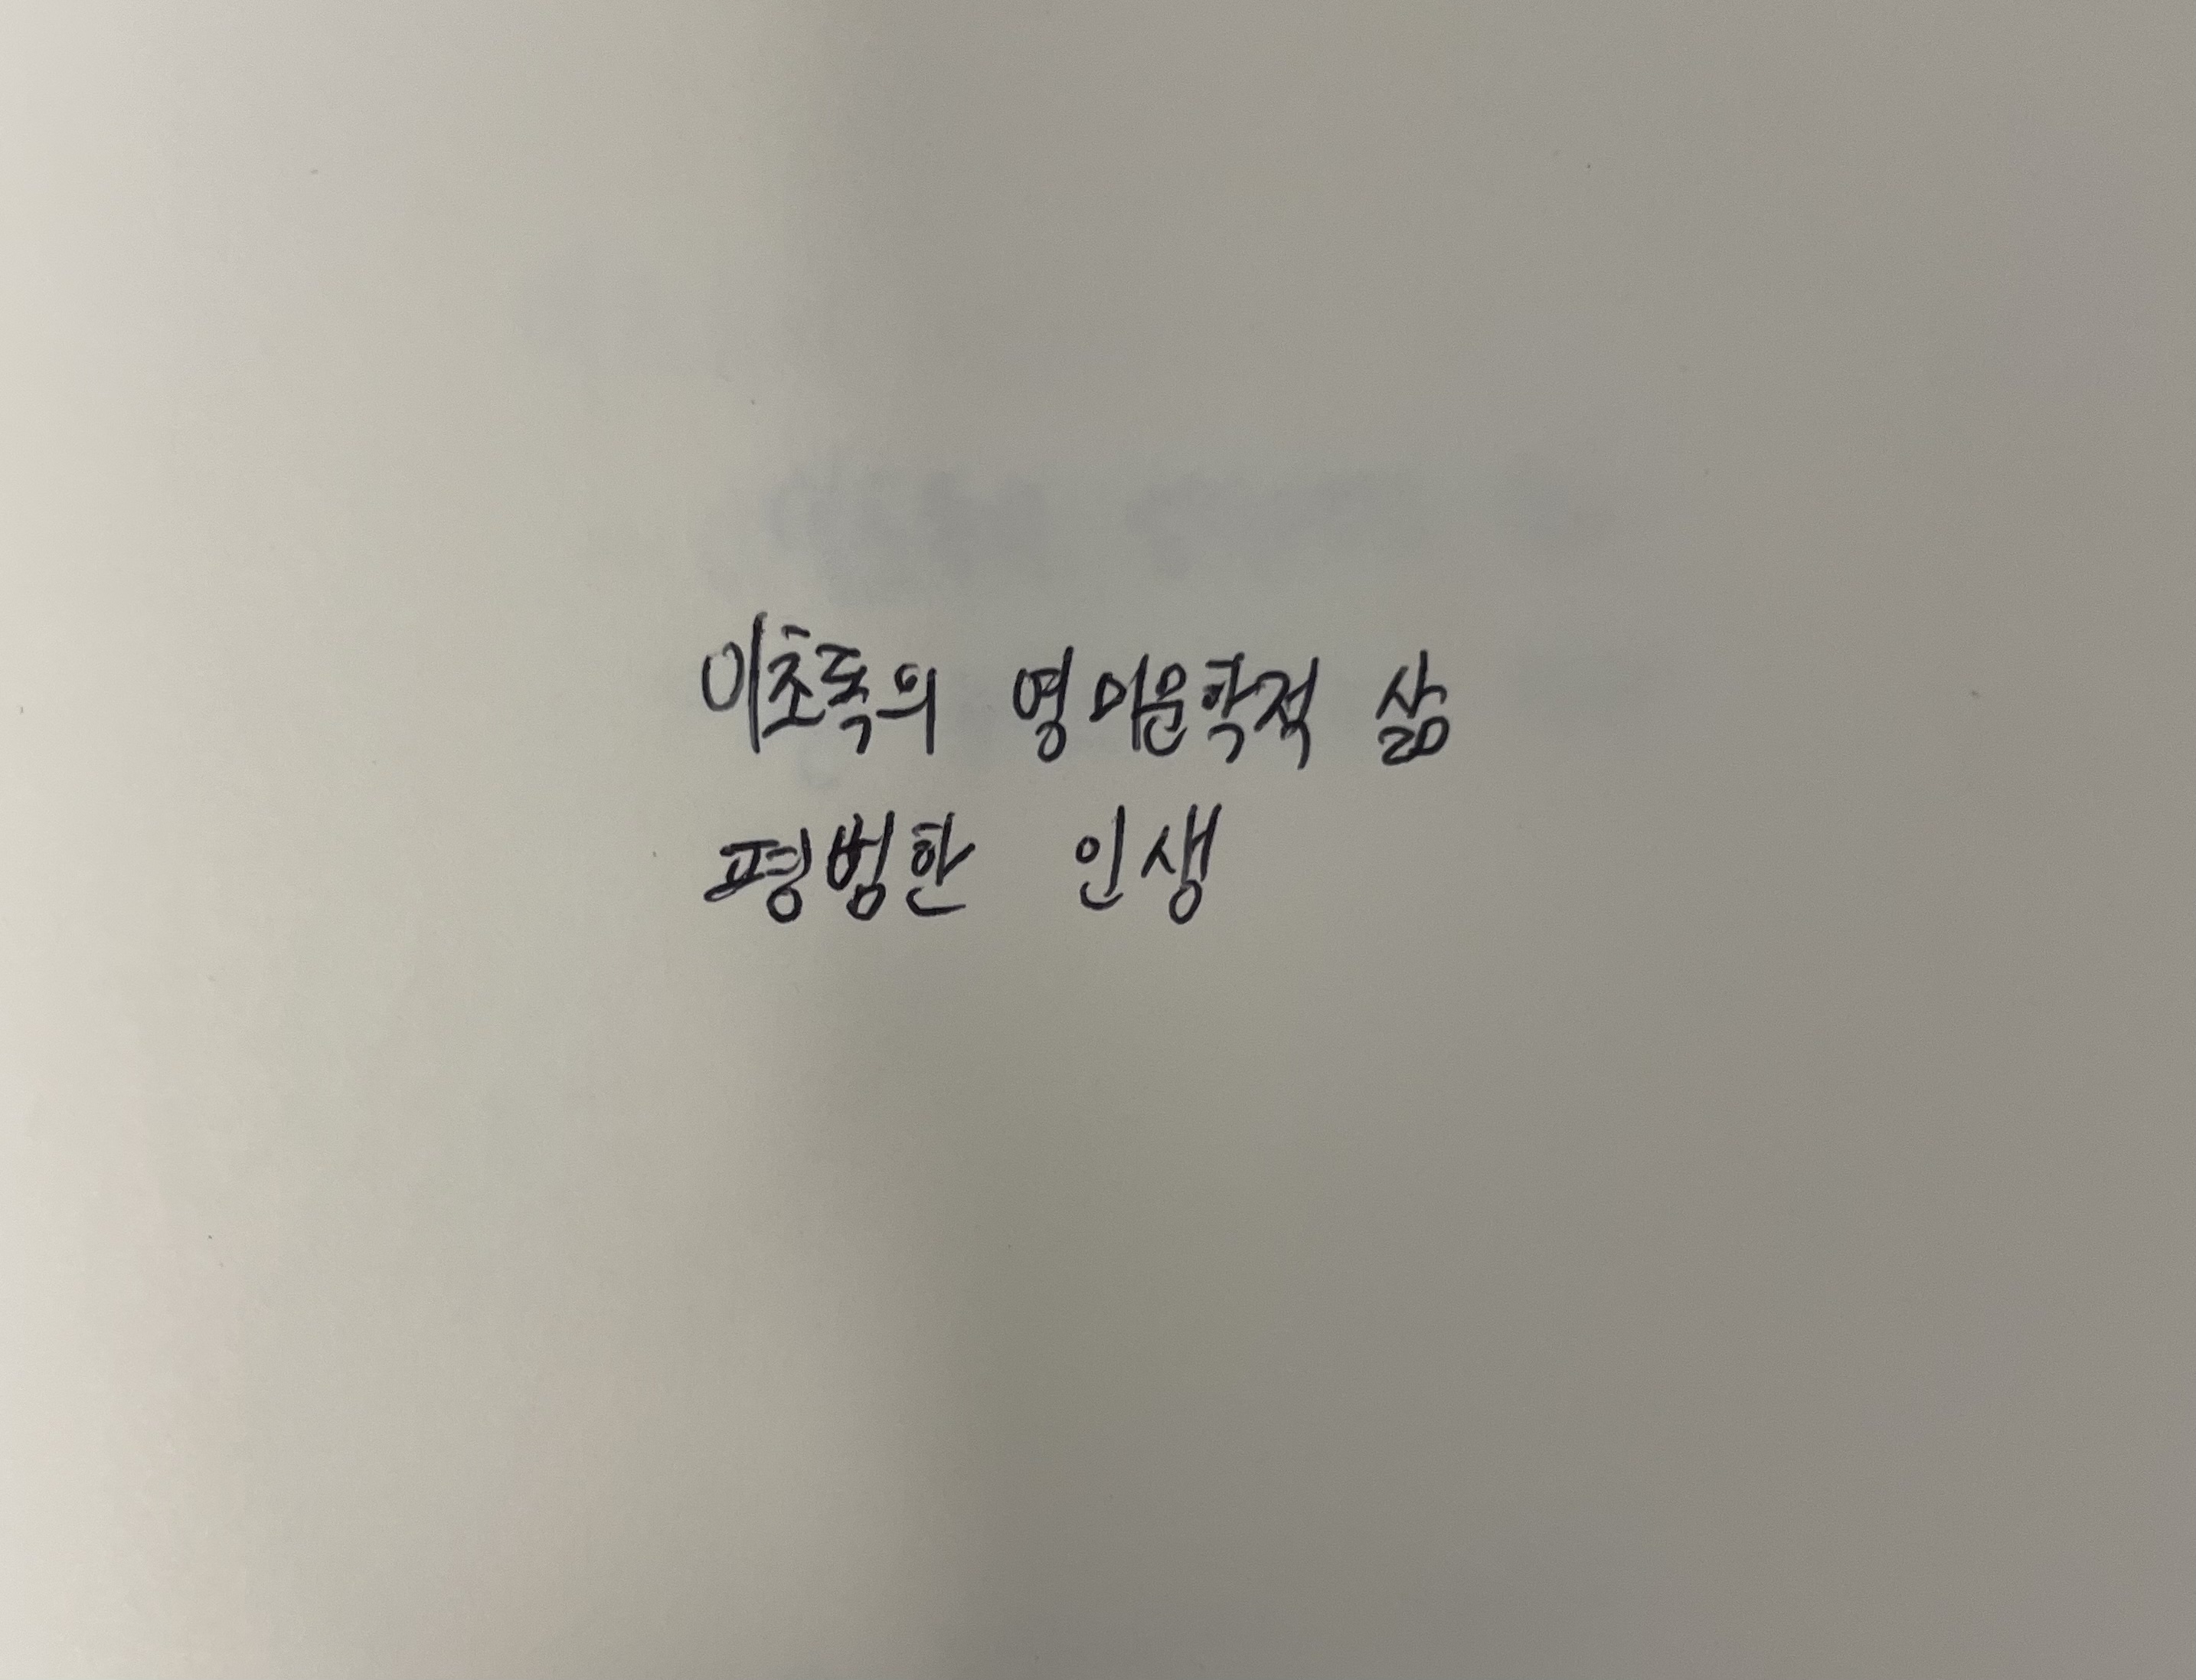 이초록의 영미문학적 삶
평범한 인생